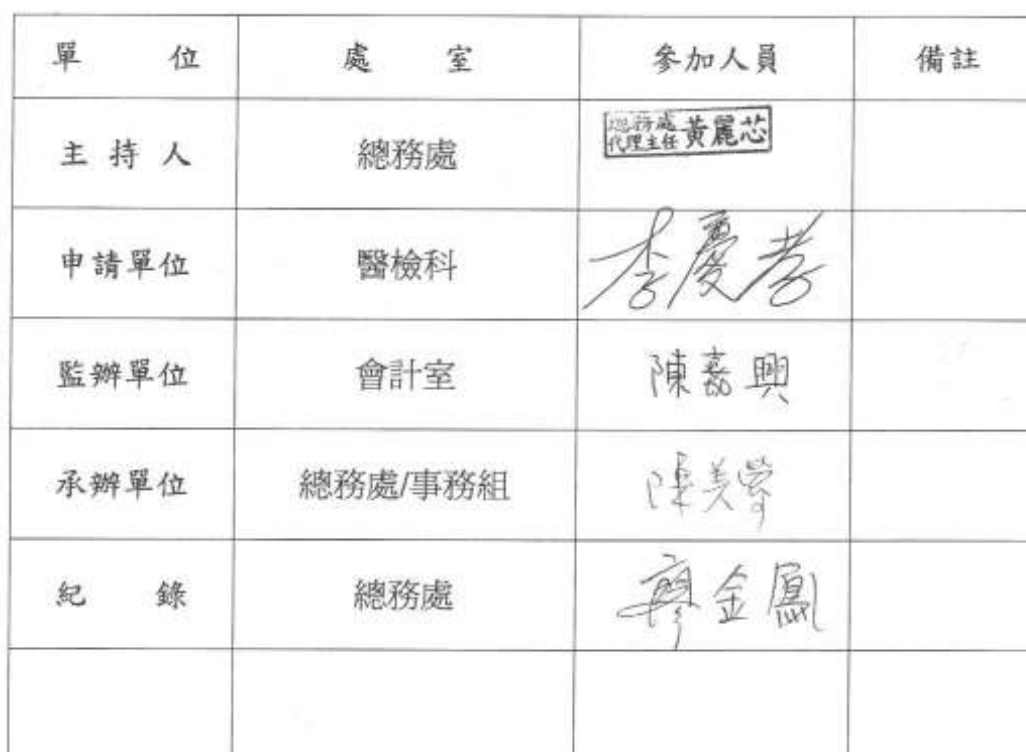 單 位 處 室 參加人員 備註
主持人 總務處 總務處
代理主任 黃麗芯
申請單位 醫檢科 李慶孝
監辦單位 會計室 陳嘉興
承辦單位 總務處/事務組 陳美
紀 錄 總務處 廖金鳳